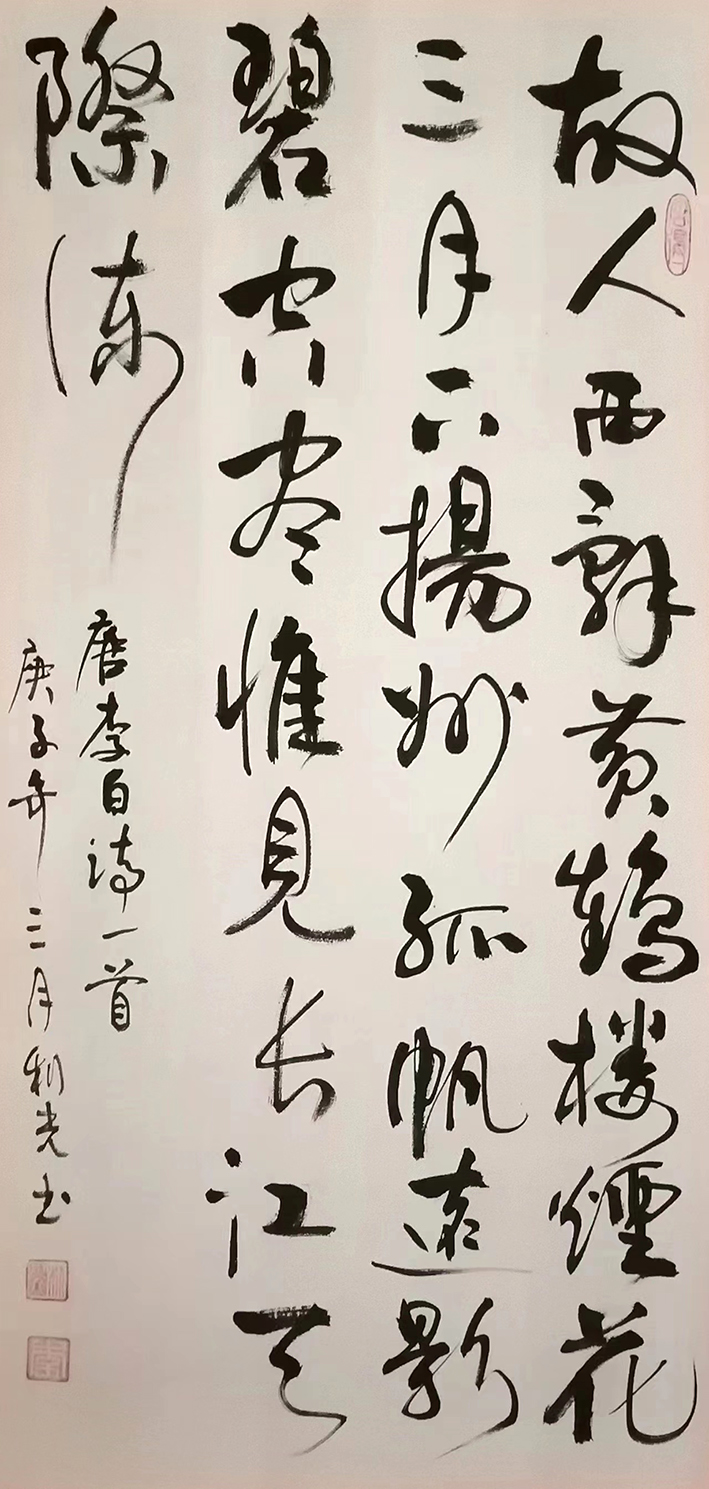 故人西辭黄鶴楼煙花
三月下揚州孤帆遠影
碧空尽惟見长江天
際流
唐李白诗一首
庚子年三月利光书